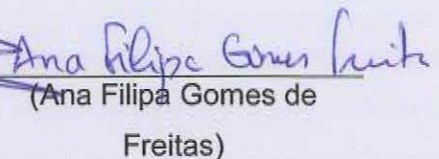 Ana Filipa Gomes Freitas
(Ana Filipa Gomes de
Freitas)